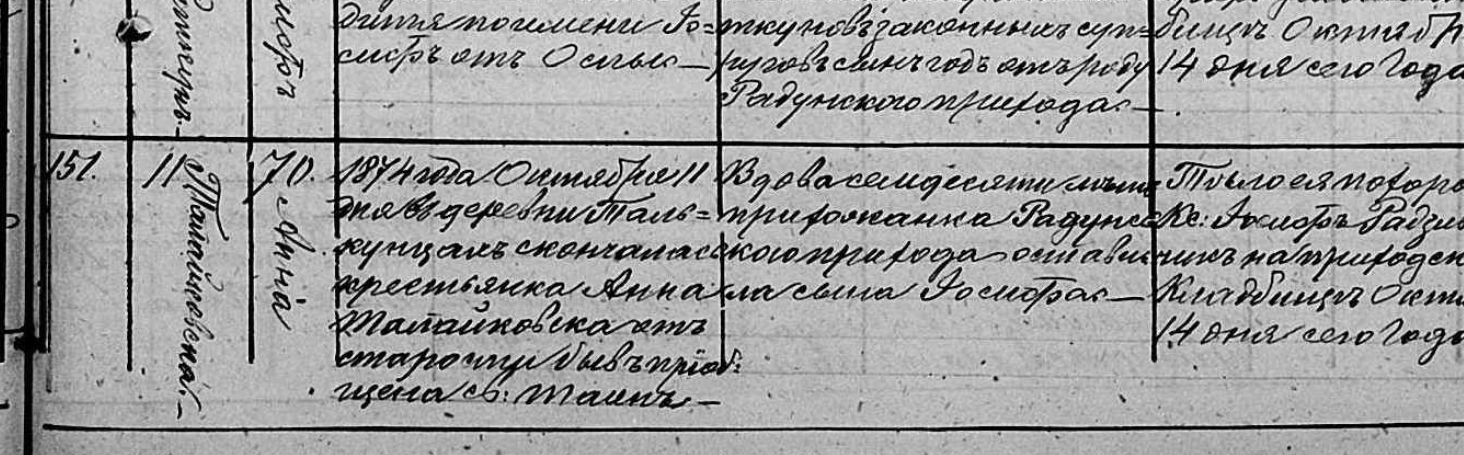 дитя по имени Іо=
сифъ отъ Оспы —
ткуповъ законныхъ суп=
руговъ сынъ годъ отъ роду
Радунскаго прихода —
бищѣ Октяб
14 дня сего года
151.
11
Талайковска. —
70.
Анна
1874 года Октября 11
дня въ деревни Таль=
кунцахъ скончалась
крестьянка Анна
Талайковска отъ
старости бывъ пріоб:
щена св: Таинъ —
Вдова семидесяти лѣтъ
прихожанка Радунс
каго прихода остави
ла сына Іосифа —
Тѣло ея похоро
Кс: Іосифъ Радзи
на приходск
Кладбищѣ Октя
14 дня сего года